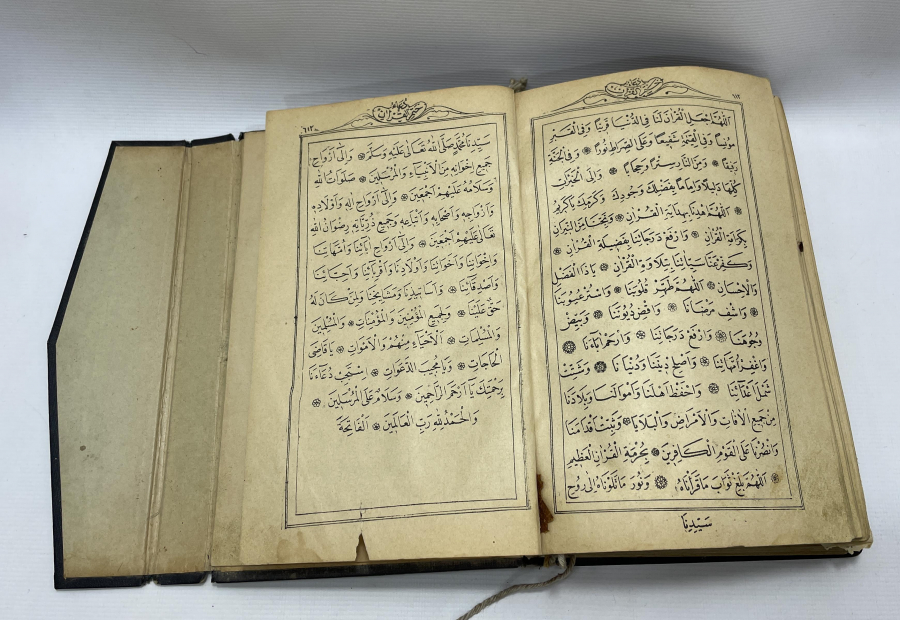 ٦١٢
دعاء ختم القرآن
اَللّٰهُمَّ اجْعَلِ الْقُرْاٰنَ لَنَا فِى الدُّنْيَا قَرِينًا وَفِى الْقَبْرِ
مُونِسًا وَفِى الْقِيٰمَةِ شَفِيعًا وَعَلَى الصِّرَاطِ نُورًا وَفِى الْجَنَّةِ
رَفِيقًا وَمِنَ النَّارِ سِتْرًا وَحِجَابًا وَاِلَى الْخَيْرَاتِ
كُلِّهَا دَلِيلًا وَاِمَامًا بِفَضْلِكَ وَجُودِكَ وَكَرَمِكَ يَا كَرِيمُ
اَللّٰهُمَّ اهْدِنَا بِهِدَايَةِ الْقُرْاٰنِ وَنَجِّنَا مِنَ النِّيرَانِ
بِكَرَامَةِ الْقُرْاٰنِ وَارْفَعْ دَرَجَاتِنَا بِفَضِيلَةِ الْقُرْاٰنِ
وَكَفِّرْ عَنَّا سَيِّئَاتِنَا بِتِلَاوَةِ الْقُرْاٰنِ يَا ذَا الْفَضْلِ
وَالْاِحْسَانِ اَللّٰهُمَّ طَهِّرْ قُلُوبَنَا وَاسْتُرْ عُيُوبَنَا
وَاشْفِ مَرْضَانَا وَاقْضِ دُيُونَنَا وَبَيِّضْ
وُجُوهَنَا وَارْفَعْ دَرَجَاتِنَا وَارْحَمْ اٰبَاءَنَا
وَاغْفِرْ اُمَّهَاتِنَا وَاَصْلِحْ دِينَنَا وَدُنْيَانَا وَشَتِّتْ
شَمْلَ اَعْدَائِنَا وَاحْفَظْ اَهْلَنَا وَاَمْوَالَنَا وَبِلَادَنَا
مِنْ جَمِيعِ الْاٰفَاتِ وَالْاَمْرَاضِ وَالْبَلَايَا وَثَبِّتْ اَقْدَامَنَا
وَانْصُرْنَا عَلَى الْقَوْمِ الْكَافِرِينَ بِحُرْمَةِ الْقُرْاٰنِ الْعَظِيمِ
اَللّٰهُمَّ بَلِّغْ ثَوَابَ مَا قَرَأْنَاهُ وَنُورَ مَا تَلَوْنَاهُ اِلَى رُوحِ
سَيِّدِنَا
دعاء ختم القرآن
٦١٣
سَيِّدِنَا مُحَمَّدٍ صَلَّى اللّٰهُ تَعَالَى عَلَيْهِ وَسَلَّمَ وَاِلَى اَرْوَاحِ
جَمِيعِ اِخْوَانِهِ مِنَ الْاَنْبِيَاءِ وَالْمُرْسَلِينَ صَلَوَاتُ اللّٰهِ
وَسَلَامُهُ عَلَيْهِمْ اَجْمَعِينَ وَاِلَى اَرْوَاحِ اٰلِهِ وَاَوْلَادِهِ
وَاَزْوَاجِهِ وَاَصْحَابِهِ وَاَتْبَاعِهِ وَجَمِيعِ ذُرِّيَّاتِهِ رِضْوَانُ اللّٰهِ
تَعَالَى عَلَيْهِمْ اَجْمَعِينَ وَاِلَى اَرْوَاحِ اٰبَائِنَا وَاُمَّهَاتِنَا
وَاِخْوَانِنَا وَاَخَوَاتِنَا وَاَوْلَادِنَا وَاَقْرِبَائِنَا وَاَحِبَّائِنَا
وَاَصْدِقَائِنَا وَاَسَاتِيذِنَا وَمَشَايِخِنَا وَلِمَنْ كَانَ لَهُ
حَقٌّ عَلَيْنَا وَلِجَمِيعِ الْمُؤْمِنِينَ وَالْمُؤْمِنَاتِ وَالْمُسْلِمِينَ
وَالْمُسْلِمَاتِ اَلْاَحْيَاءِ مِنْهُمْ وَالْاَمْوَاتِ يَا قَاضِىَ
الْحَاجَاتِ وَيَا مُجِيبَ الدَّعَوَاتِ اِسْتَجِبْ دُعَاءَنَا
بِرَحْمَتِكَ يَا اَرْحَمَ الرَّاحِمِينَ وَسَلَامٌ عَلَى الْمُرْسَلِينَ
وَالْحَمْدُ لِلّٰهِ رَبِّ الْعَالَمِينَ اَلْفَاتِحَةَ